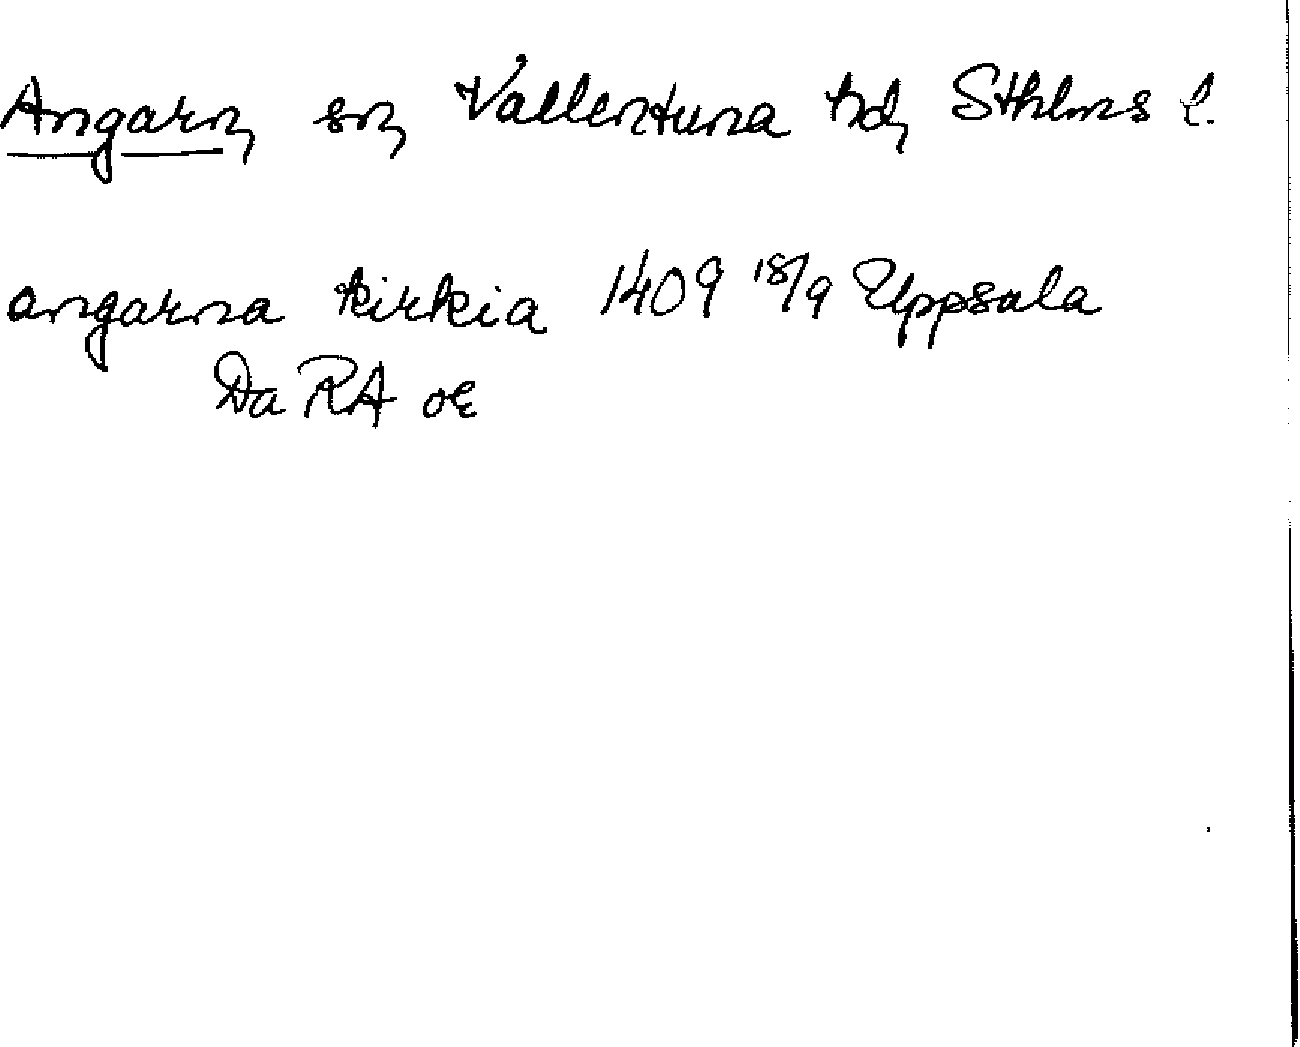 Angarn, sn, Vallentuna hd, Sthlms l.
angarna kirkia 1409 18/9 Uppsala
Da RA oE